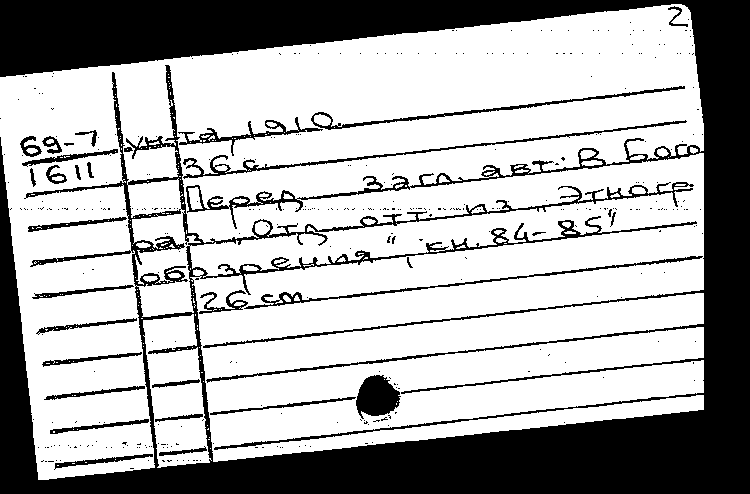 2
69-7 ун-та, 1910.
1611 36 с.
Перед загл. авт.: В Бого
раз. „Отд. отт. из „Этногр
обозрения“, кн. 84-85“
26 cm